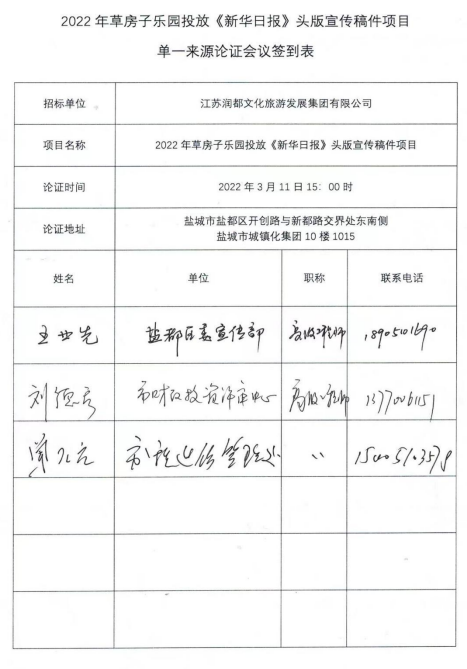 2022 年草房子乐园投放《新华日报》头版宣传稿件项目
单一来源论证会议签到表
招标单位 江苏润都文化旅游发展集团有限公司
项目名称 2022 年草房子乐园投放《新华日报》头版宣传稿件项目
论证时间 2022 年 3 月 11 日 15：00 时
论证地址 盐城市盐都区开创路与新都路交界处东南侧
盐城市城镇化集团 10 楼 1015
姓名 单位 职称 联系电话
盐都区委宣传部 高级工程师
刘 市财政投资评审中心 高级工程师 13770061151